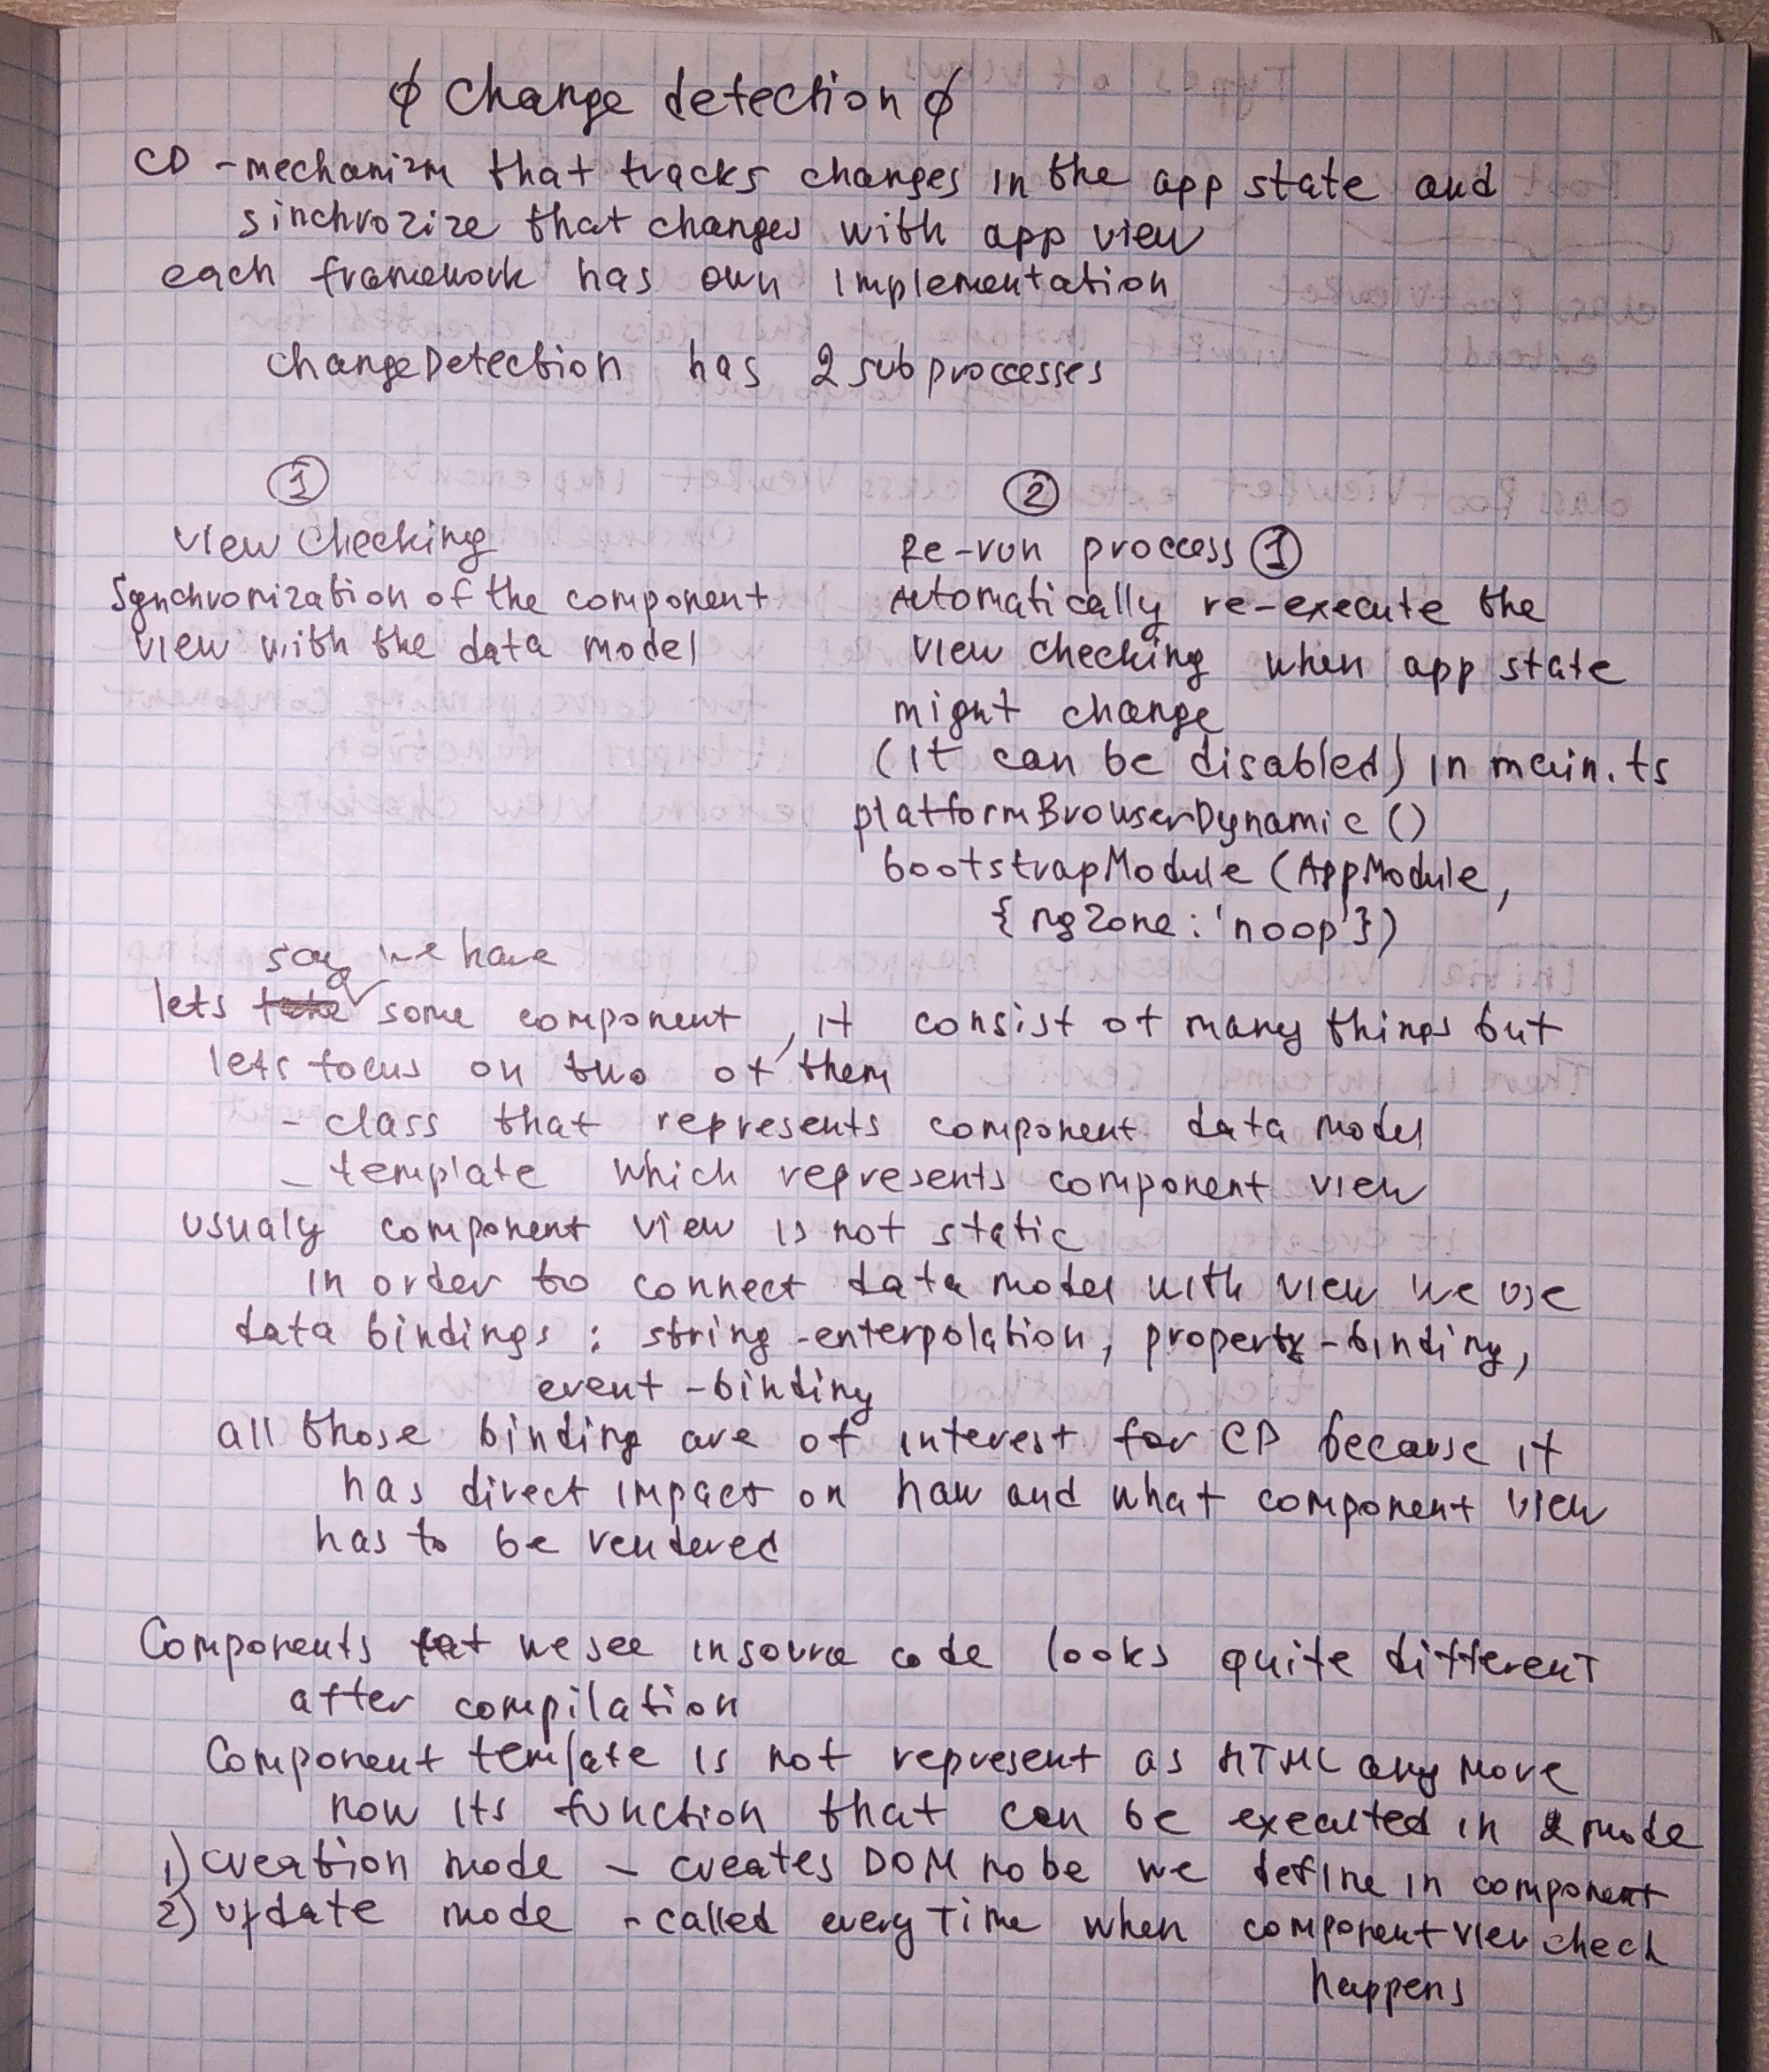 ∮ Change detection ∮
CD - mechanizm that tracks changes in the app state and
sinchrozize that changes with app view
each framework has own implementation
changeDetection has 2 subproccesses
①
View checking
Synchronization of the component
view with the data model
②
Re-run proccess ①
Automatically re-execute the
view checking when app state
might change
(it can be disabled) in main.ts
platformBrowserDynamic ()
bootstrapModule (AppModule,
{ngZone: 'noop'})
say we have
lets take some component, it consist of many things but
lets focus on two of them
- class that represents component data model
- template which represents component view
usualy component view is not static
in order to connect data model with view we use
data bindings: string-enterpolation, property-binding,
event-binding
all those binding are of interest for CD because it
has direct impact on how and what component view
has to be rendered
Components tat we see in source code looks quite different
after compilation
Component template is not represent as HTML any more
now its function that can be executed in 2 mode
1) creation mode - creates DOM node we define in component
2) update mode - called every time when component view check
happens